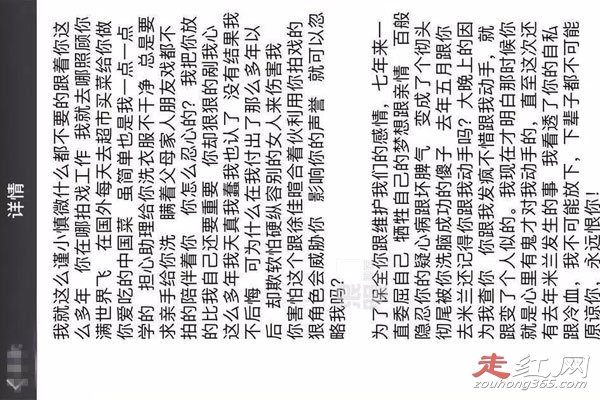 详情
我就这么谨小慎微什么都不要的跟着你这
么多年 你在哪拍戏工作 我就去哪照顾你
满世界飞 在国外每天去超市买菜给你做
你爱吃的中国菜 虽简单也是我一点一点
学的 担心助理给你洗衣服不干净 总是要
求亲手给你洗 瞒着父母家人朋友戏都不
拍的陪伴着你 你怎么忍心的？ 我把你放
的比我自己还要重要 你却狠狠的剐我心
这么多年我天真我蠢我也认了 没有结果我
不后悔 可为什么在我付出了那么多年以
后 却欺软怕硬纵容别的女人来伤害我
你害怕这个跟徐佳暄合着伙利用你拍戏的
狠角色会威胁你 影响你的声誉 就可以忽
略我吗？
为了保全你跟维护我们的感情，七年来一
直委屈自己 牺牲自己的梦想跟亲情 百般
隐忍你的疑心病跟坏脾气 变成了个彻头
彻尾被你洗脑成功的傻子 去年五月跟你
去米兰还记得你跟我动手吗？大晚上的因
为我查你 你跟我发疯不惜跟我动手，就
跟变了个人似的。我现在才明白那时候你
就是心里有鬼才对我动手的，直至这次还
有去年米兰发生的事 我看透了你的自私
跟冷血，我不可能放下，下辈子都不可能
原谅你，永远恨你！
走红网
zouhong365.com